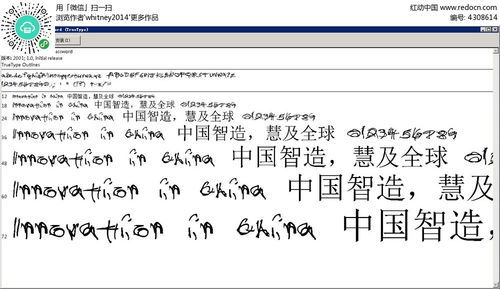 用「微信」扫一扫
浏览作者'whitney2014'更多作品
红动中国 www.redocn.com
编号: 4308614
(TrueType)
assword
版本: 2001; 1.0, initial release
TrueType Outlines
1234567890
12 Innovation in China 中国智造，慧及全球 0123456789
18 Innovation in China 中国智造，慧及全球 0123456789
24 Innovation in China 中国智造，慧及全球 0123456789
36 Innovation in China 中国智造，慧及全球 0123456789
48 Innovation in China 中国智造，慧及全球 012
60 Innovation in China 中国智造，慧及
72 Innovation in China 中国智造，